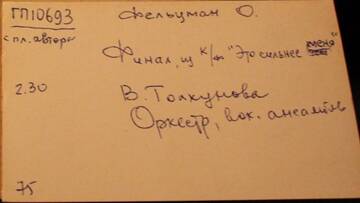 ГП10693
Фельцман О.
с пл. автора
Финал, из к/ф "Это сильнее меня"
2.30
В. Толкунова
Оркестр, вок. ансамбль
75